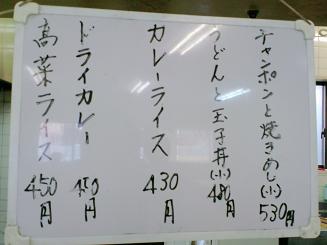 チャンポンと焼きめし(小)530円
うどんと玉子丼(小)480円
カレーライス430円
ドライカレー450円
高菜ライス450円